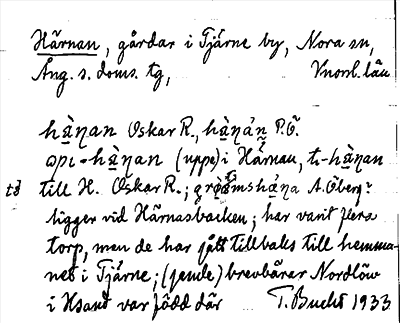 Härnan, gårdar i Tjärne by, Nora sn,
Ång. s. doms. tg, Vnorrl. län
hä̀nan Oskar R., hä̀nán P.Ö.
opi-hä̀nan (uppe) i Härnan, ti-hä̀nan
till H. Oskar R.; A. Öberg.
ligger vid Härnasbacken; har varit flera
torp, men de har gått tillbaks till hemma-
net i Tjärne; brevbärar Nordlöw
i Hsand var född där T. Bucht 1933